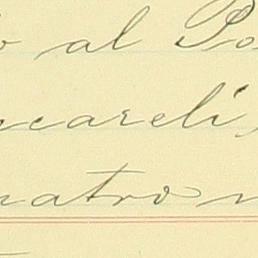 o al Po
ncareli,
uatro n